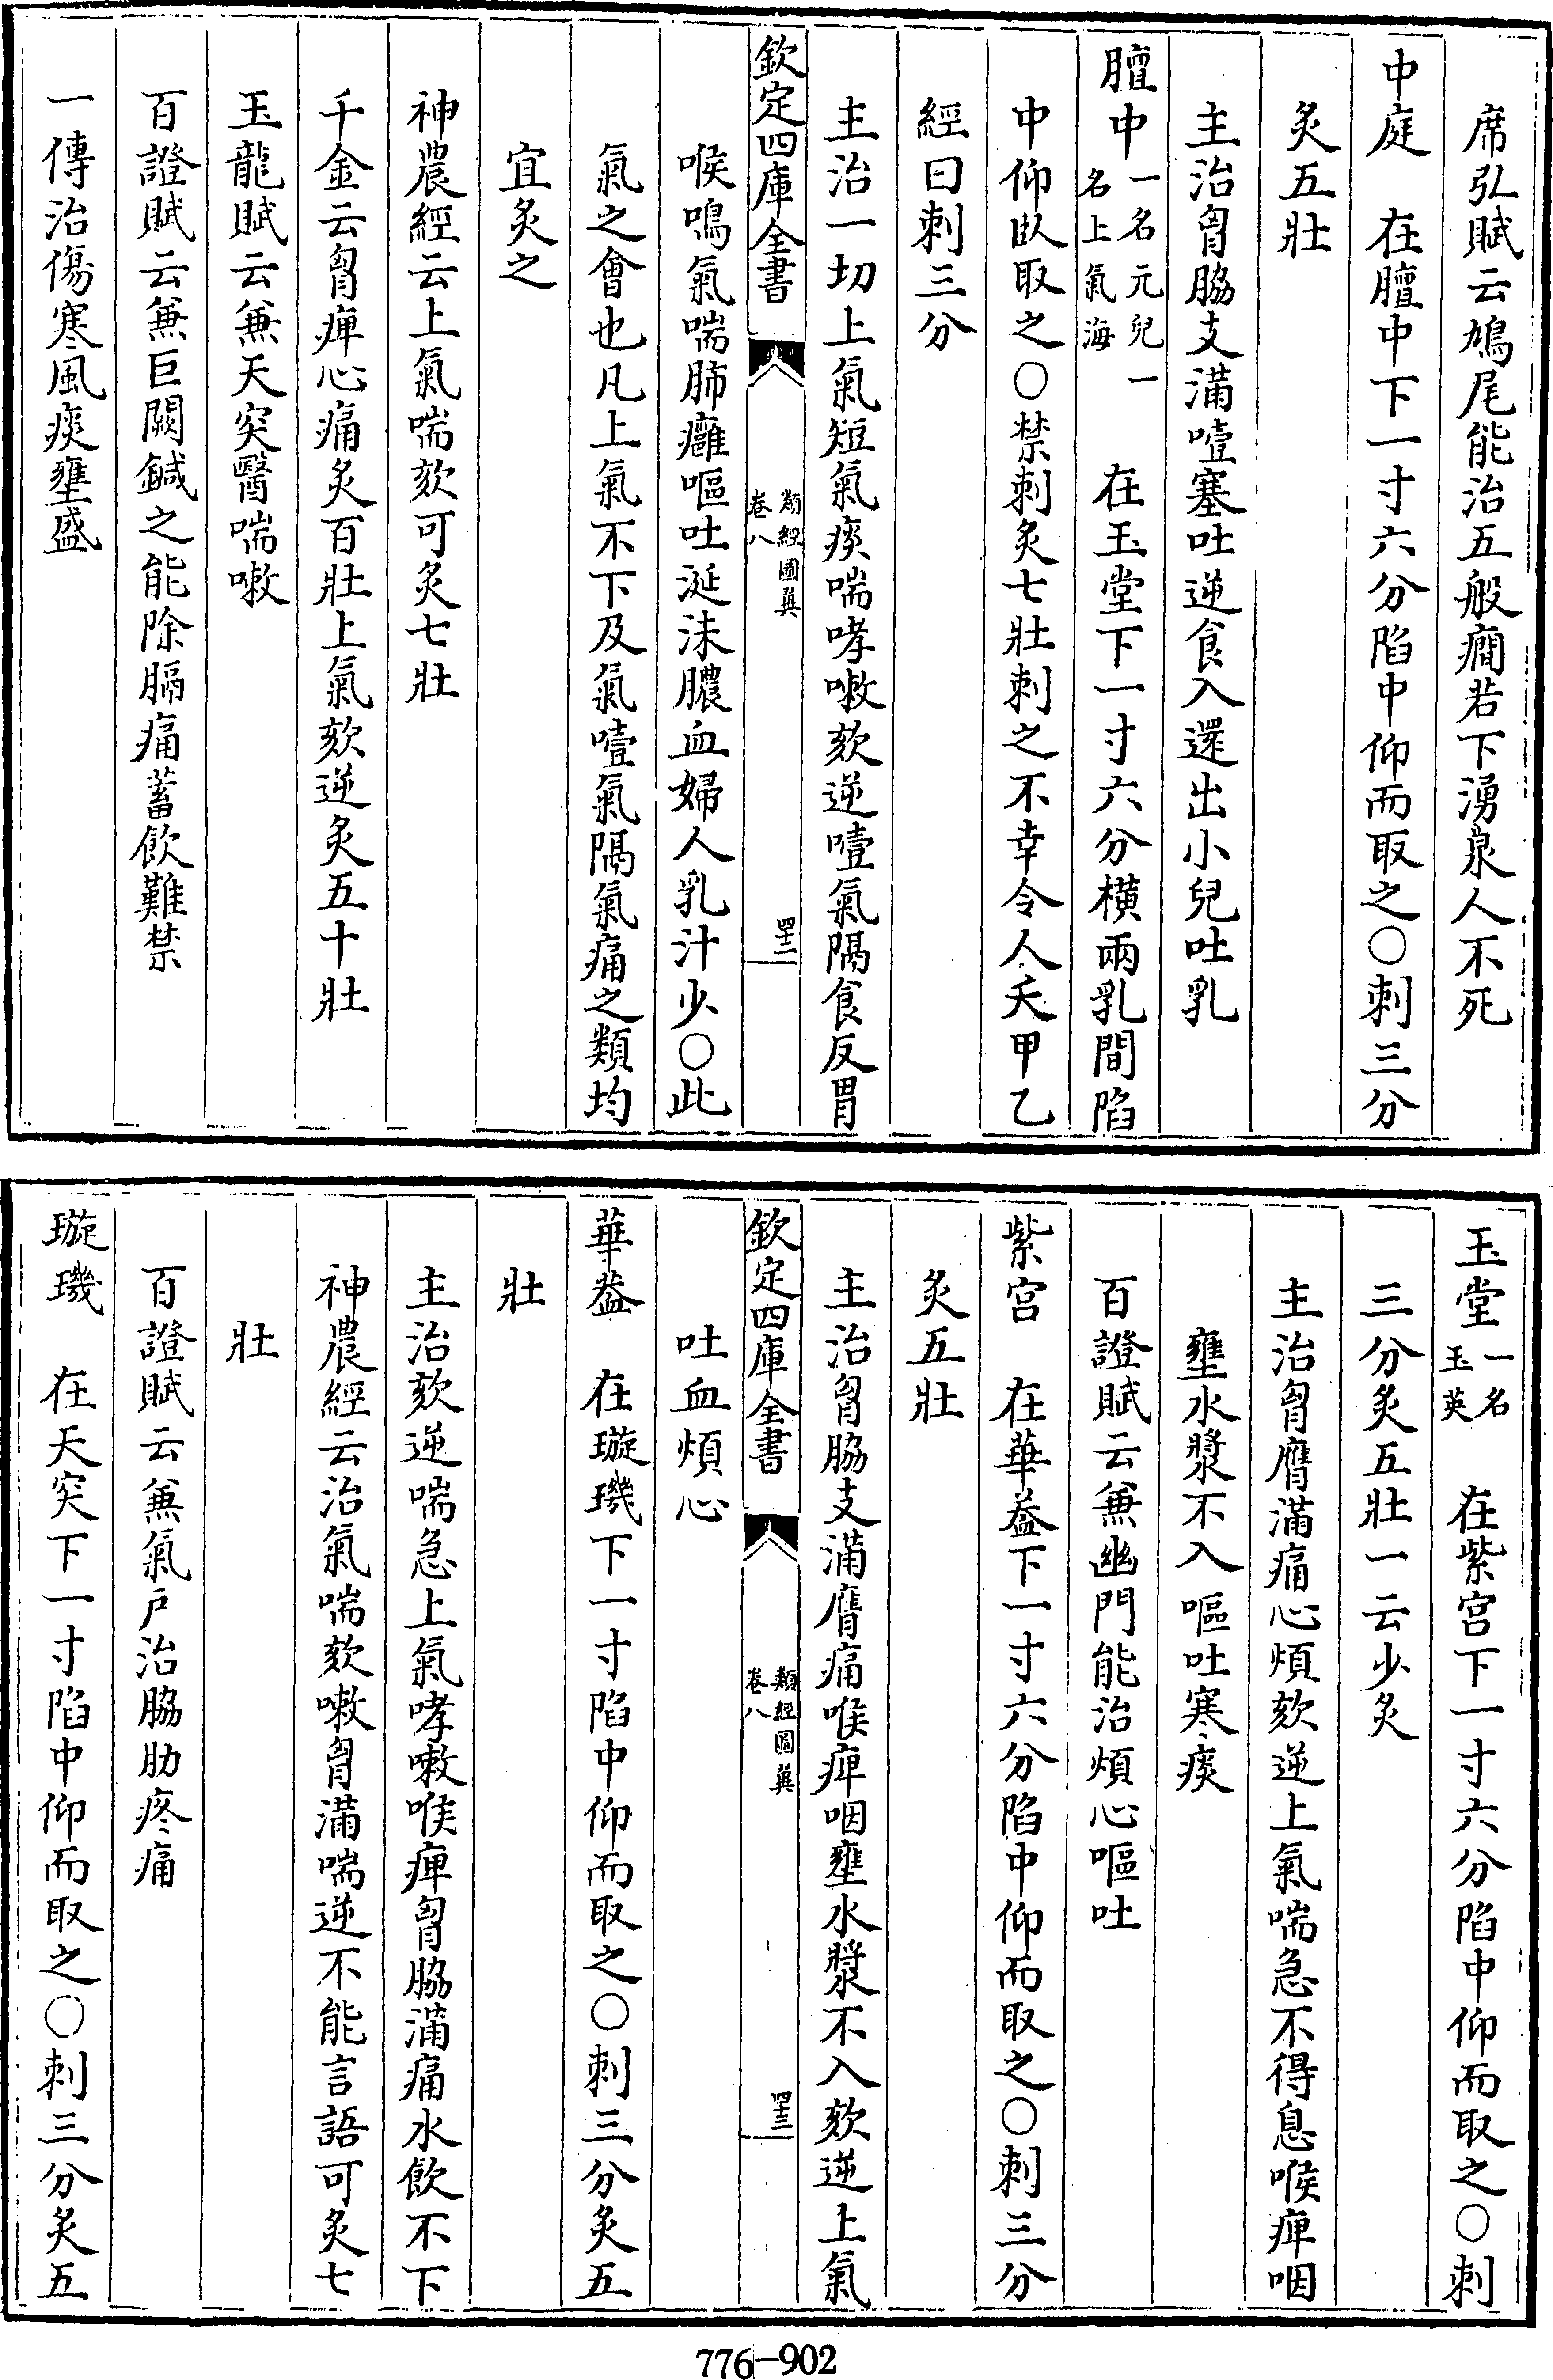 席弘賦云鳩尾能治五般癇若下湧泉人不死
中庭　在膻中下一寸六分陷中仰而取之○刺三分
灸五壯
主治胷脇支滿噎塞吐逆食入還出小兒吐乳
膻中一名元兒一名上氣海　在玉堂下一寸六分橫兩乳間陷
中仰臥取之○禁刺灸七壯刺之不幸令人夭甲乙
經曰刺三分
主治一切上氣短氣痰喘哮嗽欬逆噎氣隔食反胃
欽定四庫全書　類經圖翼卷八　四十二
喉鳴氣喘肺癰嘔吐涎沫膿血婦人乳汁少○此
氣之會也凡上氣不下及氣噎氣隔氣痛之類均
宜灸之
神農經云上氣喘欬可灸七壯
千金云胷痺心痛灸百壯上氣欬逆灸五十壯
玉龍賦云兼天突醫喘嗽
百證賦云兼巨闕鍼之能除膈痛蓄飲難禁
一傳治傷寒風痰壅盛
玉堂一名玉英　在紫宮下一寸六分陷中仰而取之○刺
三分灸五壯一云少灸
主治胷膺滿痛心煩欬逆上氣喘急不得息喉痺咽
壅水漿不入嘔吐寒痰
百證賦云兼幽門能治煩心嘔吐
紫宮　在華葢下一寸六分陷中仰而取之○刺三分
灸五壯
主治胷脇支滿膺痛喉痺咽壅水漿不入欬逆上氣
欽定四庫全書　類經圖翼卷八　四十三
吐血煩心
華葢　在璇璣下一寸陷中仰而取之○刺三分灸五
壯
主治欬逆喘急上氣哮嗽喉痺胷脇滿痛水飲不下
神農經云治氣喘欬嗽胷滿喘逆不能言語可灸七
壯
百證賦云兼氣戶治脇肋疼痛
璇璣　在天突下一寸陷中仰而取之○刺三分灸五
776-902